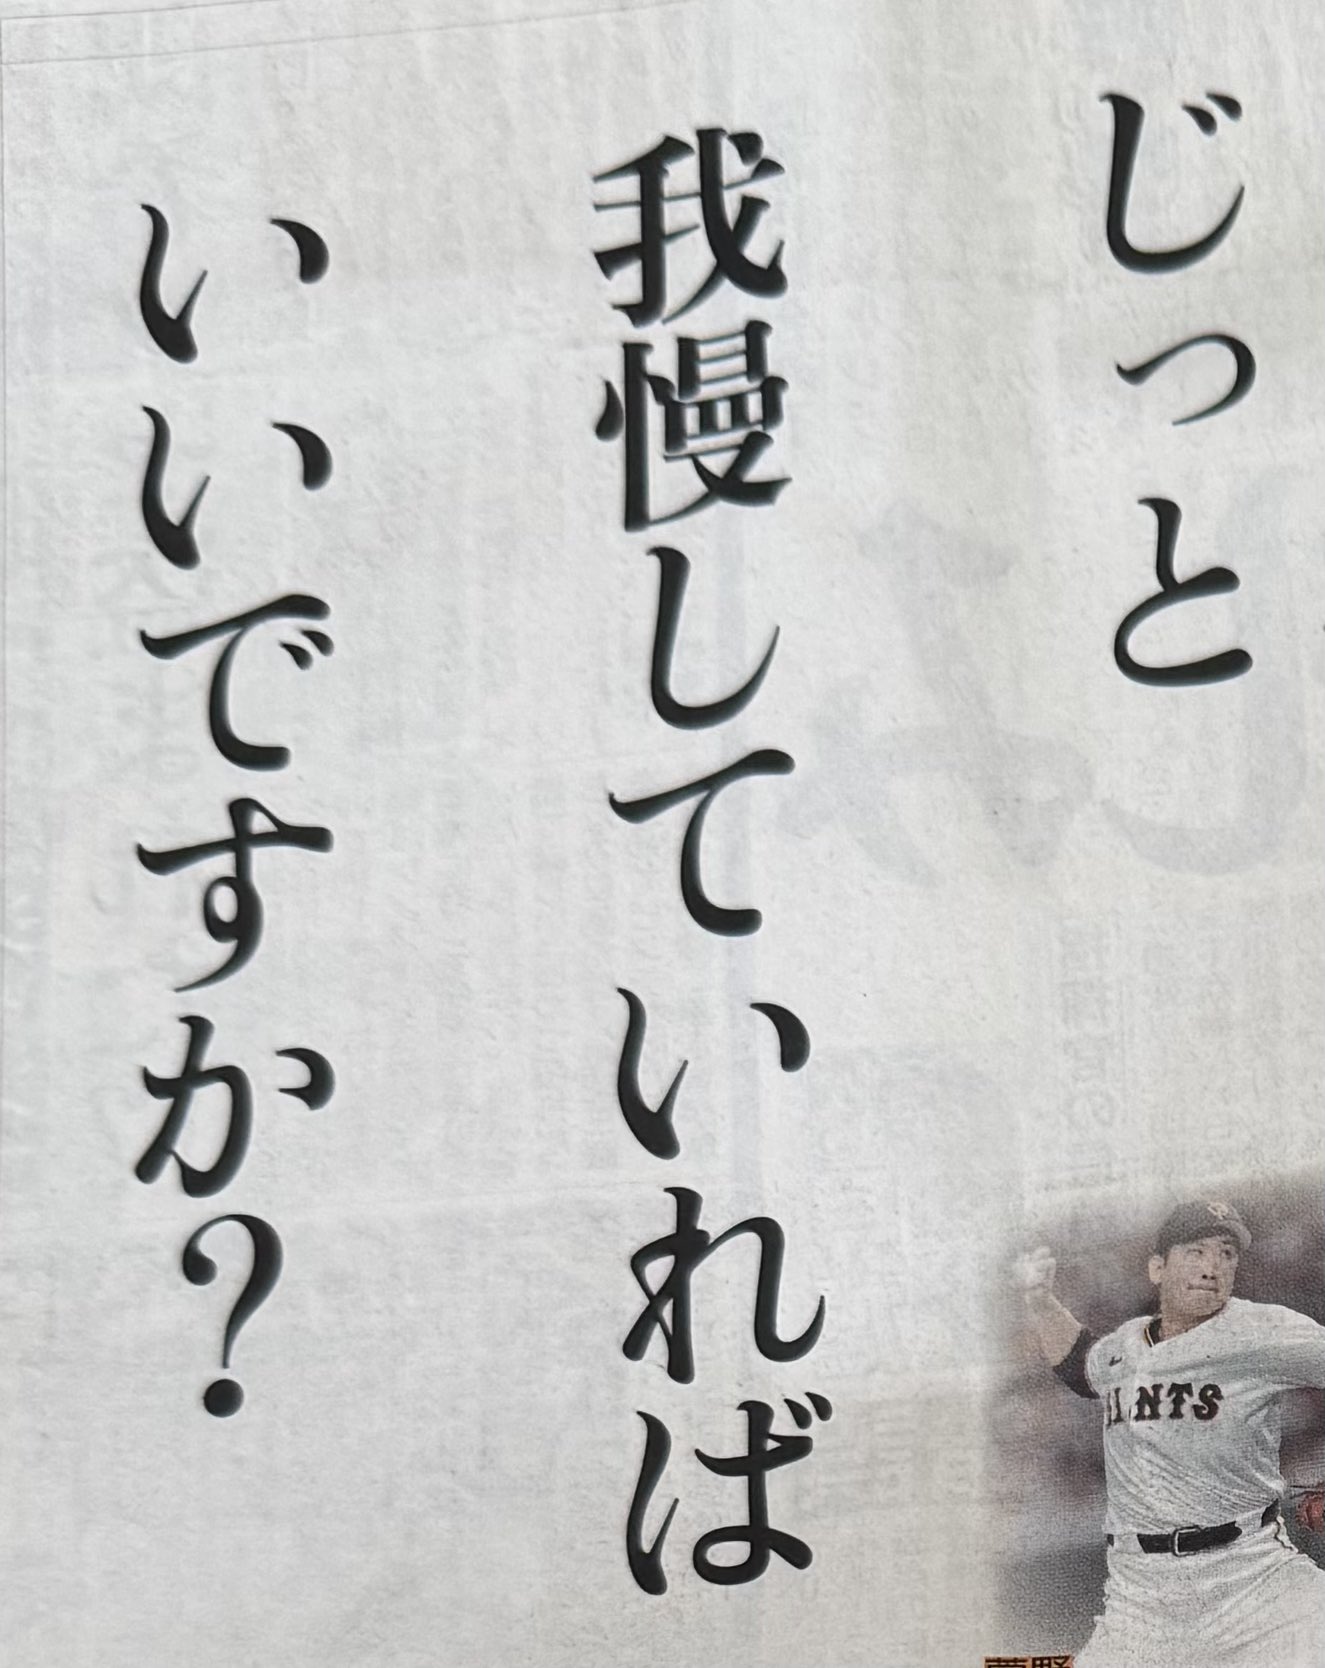 じっと
我慢していれば
いいですか?
GIANTS
菅野